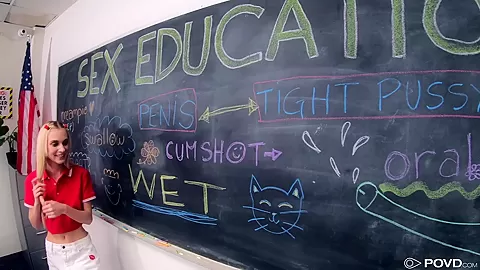 SEX EDUCATION
creampie
swallow
PENIS
TIGHT PUSSY
CUMSHOT
oral
WET
POVD.COM